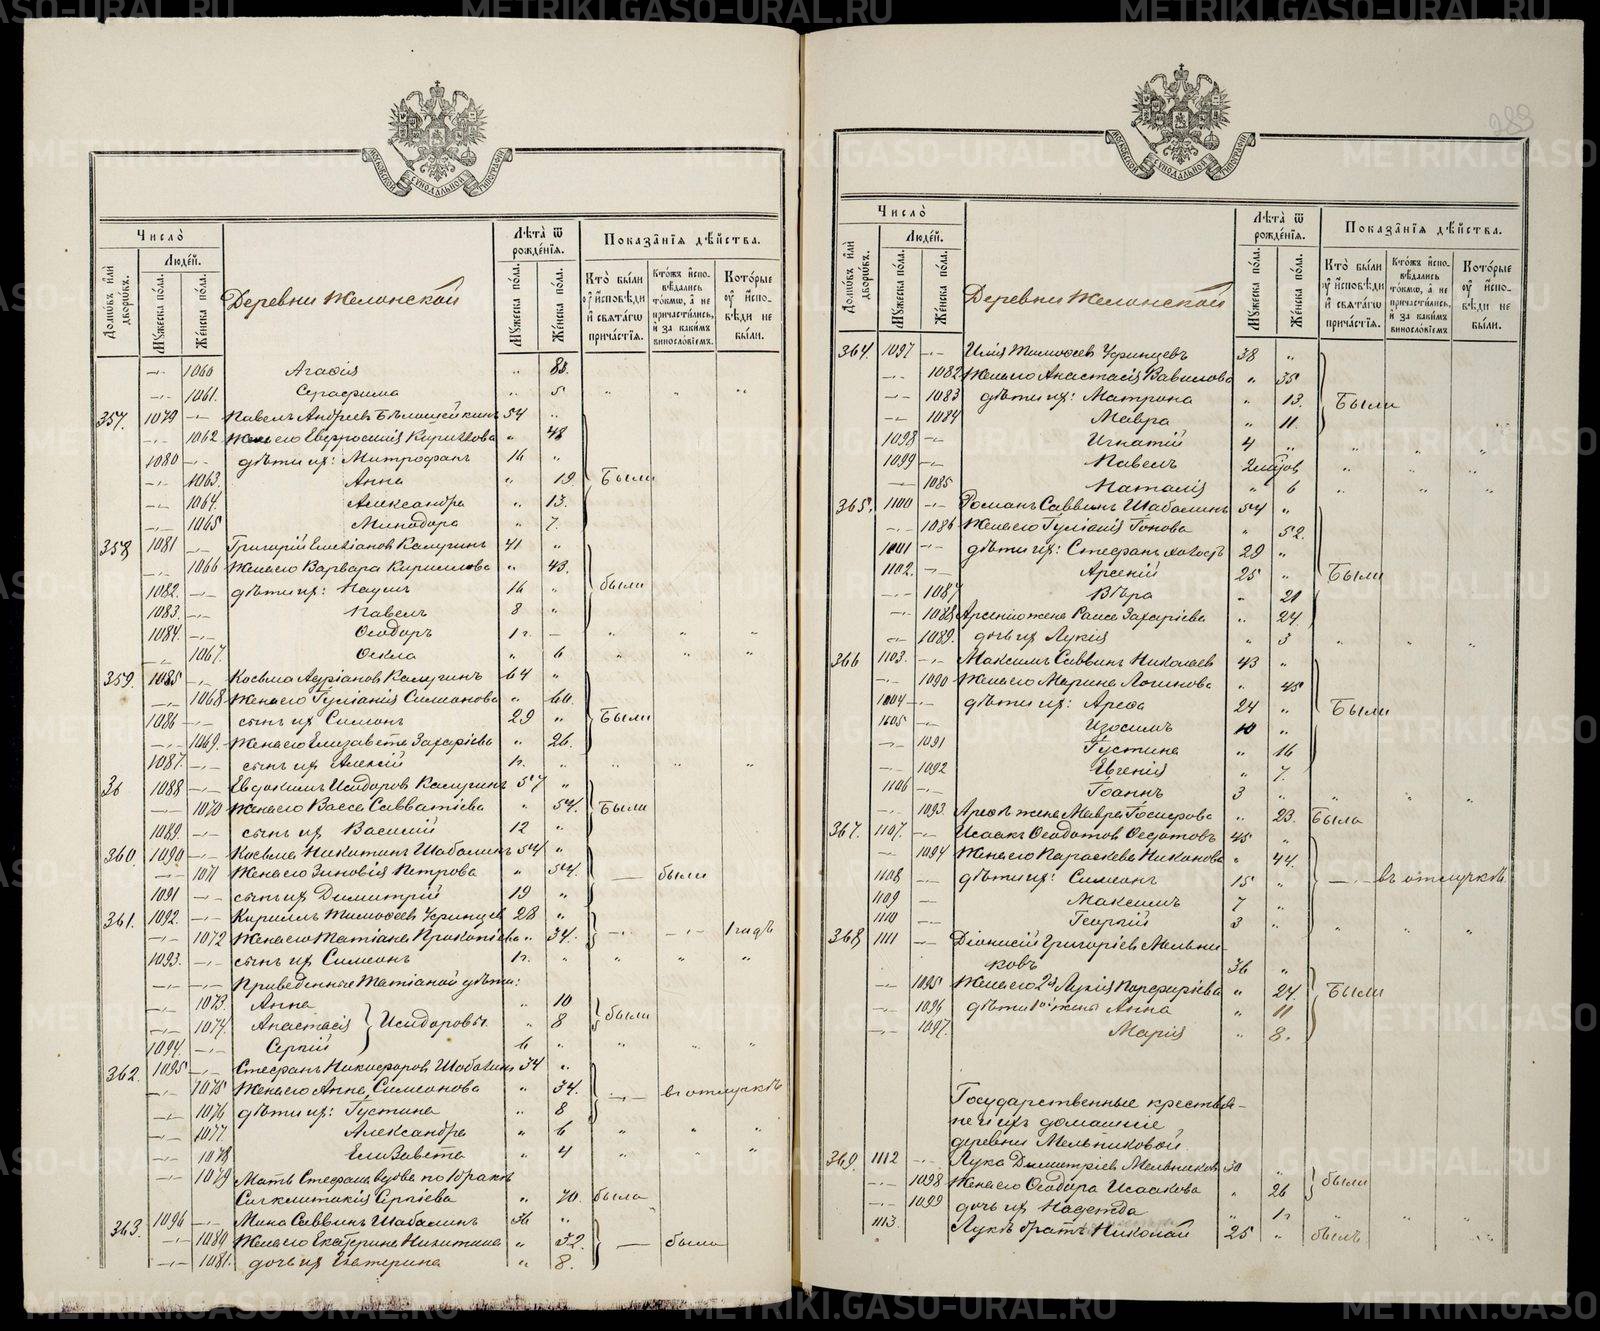 Число̀
Людѐй.
Домѡвъ и҆лѝ дворѡвъ.
Мꙋжеска по́ла.
Же́нска по́ла.
Деревни Желонской
Лѣта̀ ѿ рожде́нїѧ.
Мꙋжеска по́ла.
Же́нска по́ла.
Показа̑нїѧ дѣ́йства.
Кто̀ бы́ли оу҆ и҆сповѣди и҆ свѧта́гѡ прича́стїѧ.
Кто́жъ и҆спо- вѣдались то́кмѡ, а҆ не причасти́лись, и҆ за каки́мъ винослѡ́вїемъ.
Кото́рые оу҆ и҆спо- вѣди не бы́ли.
1060 Агафія „
1061. Серафима „ 5 „ „ „
357. 1079 Павелъ Андреевъ Бѣлошейкинъ 54 „
1062 Жена его Евфросинія Кириллова „ 48
1080 дѣти их: Митрофанъ 16 „
1063. Анна „ 19. Были
1064. Александра „ 13.
1065 Минодора „ 7.
358 1081 Григорій Калугинъ 41 „
1066 Жена его Варвара Кириллова „ 43.
1082. дѣти их: Наумъ 16 „ были
1083. Павелъ 8 „
1084. Ѳеодоръ 1 г. – „ „ „
1067. Ѳекла „ 6 „ „ „
359. 1085 Косьма Адріановъ Калугинъ 64 „
1068 Жена его Іуліанія Симонова „ 60.
1086 сынъ их Симонъ 29 „ Были
1069. Жена его Елизавета Захаріева „ 26.
1087. сынъ их Алексій 1 г. „ „ „ „
36 1088 Евдокимъ Исидоровъ Калугинъ 57 „
1070 Жена его Васса Савватіева „ 54. Были
1089. сынъ их Василій 12 „
360. 1090 Косьма Никитинъ Шабалинъ 54 „
1071 Жена его Зиновія Петрова „ 54. были
1091 сынъ их Димитрій 19 „
361. 1092. Кириллъ Тимофеевъ 28 „
1072 Жена его Татіана Прокопіева „ 34. 1 годъ
1093. сынъ их Симеонъ 1 г. „ „ „ „
Приведенные Татіаной дѣти:
1073 Анна „ 10
1074. Анастасія } Исидоровы „ 8 были
1094. Сергій 6 „ „ „ „
362. 1095 Стефанъ Никифоровъ Шабалинъ 34 „
1075 Жена его Анна Симонова „ 34. въ отлучкѣ
1076 дѣти их: Іустина „ 8
1077. Александра „ 6 „ „ „
1078 Елизавета „ 4 „ „ „
1079 Мать Стефана вдова по II бракѣ
Синклитикія Сергіева „ 70. была
363. 1096 Мина Саввинъ Шабалинъ 36 „
1080 Жена его Екатерина Никитина „ 32. были
1081. дочь их Екатерина „ 8.
Число̀
Людѐй.
Домѡвъ и҆лѝ дворѡвъ.
Мꙋжеска по́ла.
Же́нска по́ла.
Деревни Желонской
Лѣта̀ ѿ рожде́нїѧ.
Мꙋжеска по́ла.
Же́нска по́ла.
Показа̑нїѧ дѣ́йства.
Кто̀ бы́ли оу҆ и҆сповѣди и҆ свѧта́гѡ прича́стїѧ.
Кто́жъ и҆спо- вѣдались то́кмѡ, а҆ не причасти́лись, и҆ за каки́мъ винослѡ́вїемъ.
Кото́рые оу҆ и҆спо- вѣди не бы́ли.
364. 1097 Илія Тимофеевъ 38 „
1082 Жена его Анастасія Вавилова „ 35
1083 дѣти их: Матрона „ 13. Были
1084 Мавра „ 11
1098 Игнатій 4 „ „ „ „
1099 Павелъ „ „ „
1085 Наталія „ 6 „ „ „
365. 1100 Романъ Саввинъ Шабалинъ 54 „
1086 Жена его Іуліанія Іонова „ 52.
1101 дѣти их: Стефанъ холостъ 29 „
1102. Арсеній 25 „ Были
1087 Вѣра „ 21
1088 Арсенія жена Раиса Захаріева „ 24
1089. дочь их Лукія „ 3 „ „ „
366 1103. Максимъ Саввинъ Николаевъ 43 „
1090 Жена его Марина Логинова „ 45
1104 дѣти их: Арефа 24 „ Были
1105 Изосимъ 10 „
1091 Іустина „ 16
1092 Евгенія „ 7.
1106 Іоаннъ 3 „ „ „ „
1093. Арефы жена Мавра Іосифова „ 23. Была
367. 1107. Исаакъ Ѳеодотовъ Ѳедотовъ 45 „
1094 Жена его Параскева Никонова „ 44.
1108 дѣти их: Симеонъ 15 „ въ отлучкѣ
1109 Максимъ 7 „
1110 Георгій 3 „ „ „ „
368 1111 Діонисій Григоріевъ Мельни-
ковъ 36 „
1095 Жена его 2я Лукія Порфиріева „ 24. Были
1096 дѣти 1ой жены Анна „ 11
1097. Марія „ 8.
Государственные крестья-
не и их домашніе
деревни Мельниковой
369. 1112 Лука Димитріевъ Мельниковъ 30 „
1098 Жена его Ѳеодора Исаакова „ 26 были
1099 дочь их Надежда „ 1 г. „ „ „
1113. Лукѣ братъ Николай 25 „ былъ